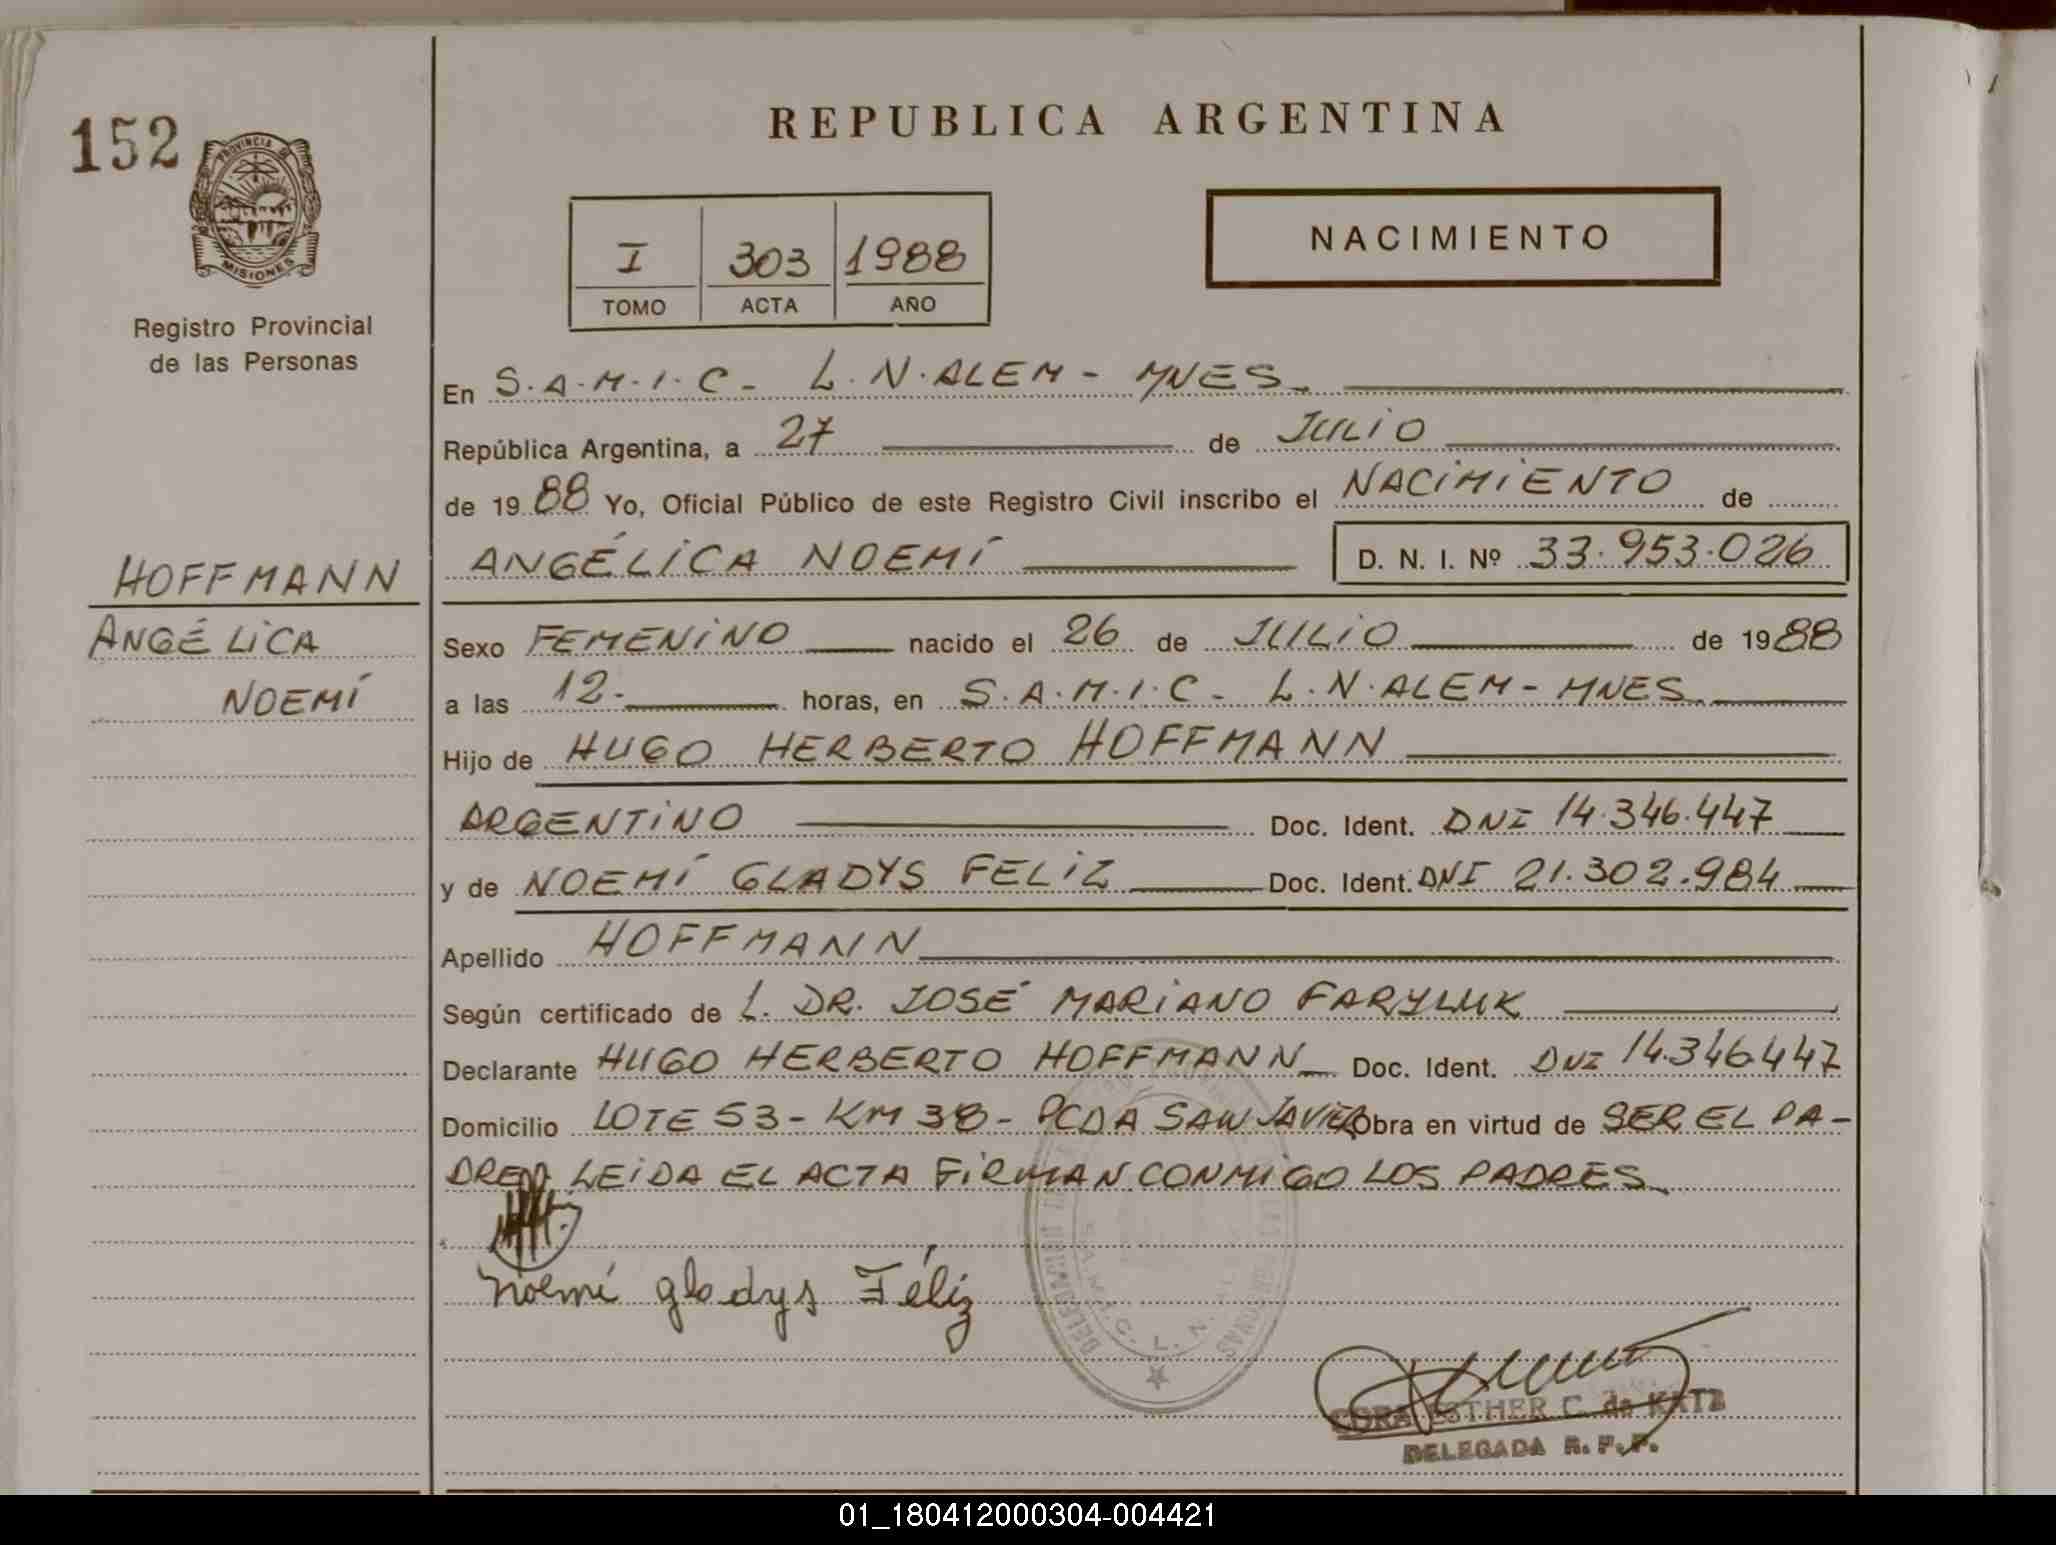 152
REPUBLICA ARGENTINA
PROVINCIA DE
MISIONES
I 303 1988
TOMO ACTA AÑO
NACIMIENTO
Registro Provincial
de las Personas
En S.A.M.I.C - L.N.ALEM - MNES
República Argentina, a 27 de JULIO
de 1988 Yo, Oficial Público de este Registro Civil inscribo el NACIMIENTO de
ANGÉLICA NOEMÍ D. N. I. Nº 33.953.026
HOFFMANN
ANGÉLICA
NOEMÍ
Sexo FEMENINO nacido el 26 de JULIO de 1988
a las 12. horas, en S.A.M.I.C - L.N.ALEM - MNES
Hijo de HUGO HERBERTO HOFFMANN
ARGENTINO Doc. Ident. DNI 14.346.447
y de NOEMÍ GLADYS FELIZ Doc. Ident. DNI 21.302.984
Apellido HOFFMANN
Según certificado de L. DR. JOSÉ MARIANO FARYLUK
Declarante HUGO HERBERTO HOFFMANN Doc. Ident. DNI 14.346.447
Domicilio LOTE 53 - KM 38 - PCDA SAN JAVIER Obra en virtud de SER EL PA-
DRE LEIDA EL ACTA FIRMAN CONMIGO LOS PADRES
Noemí gladys Féliz
S.A.M.I.C. L. N.
ESTHER C. de KATZ
DELEGADA R. P. P.
01_180412000304-004421